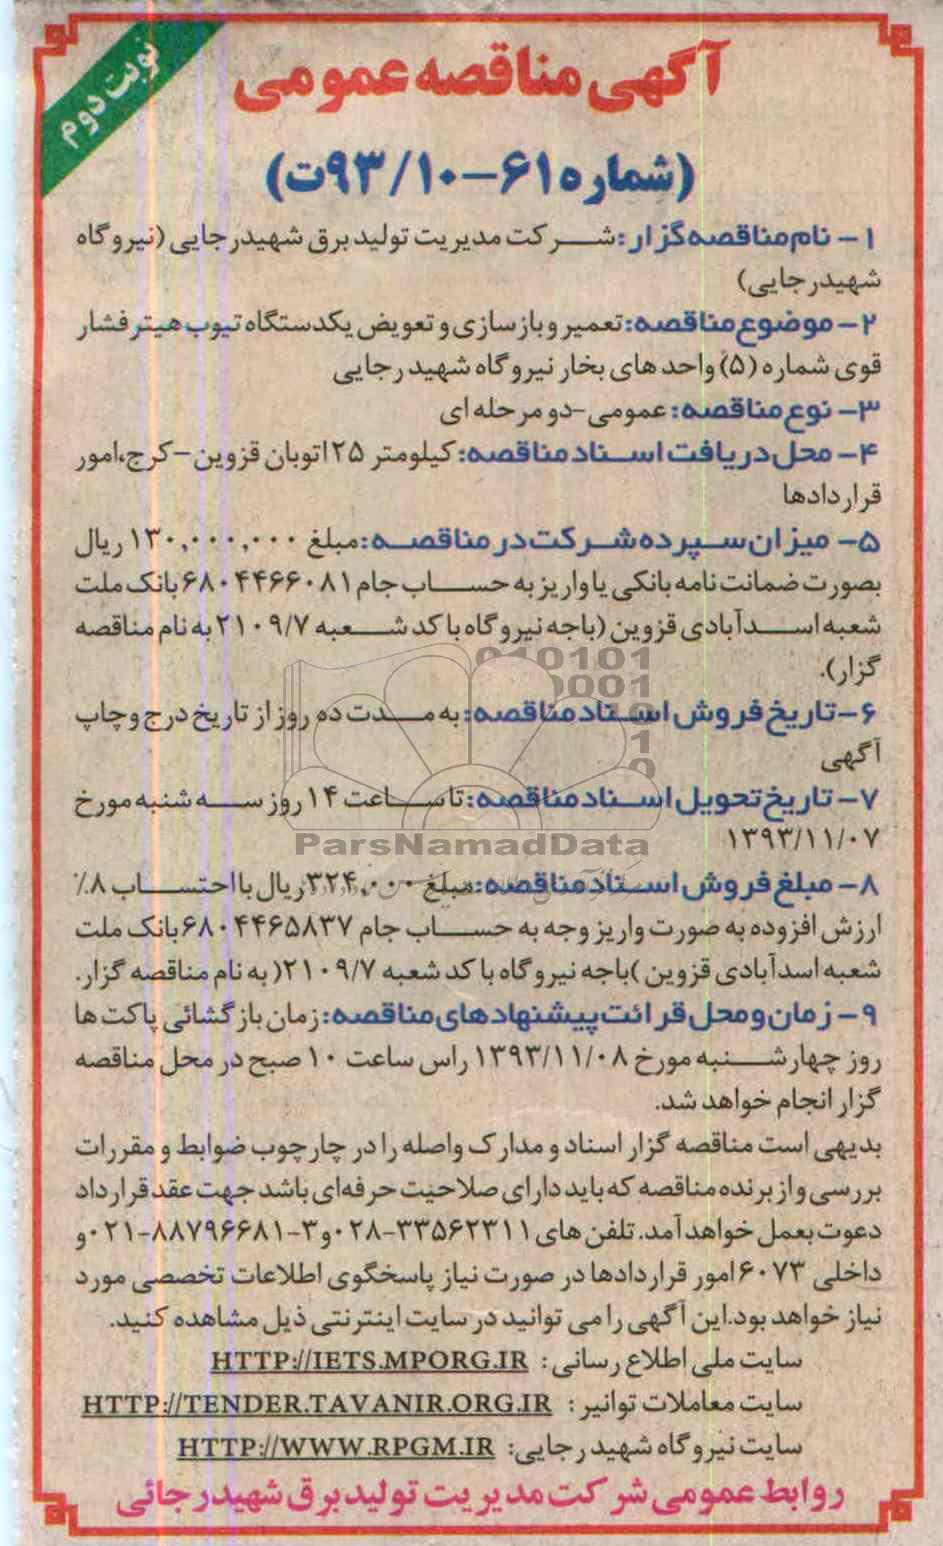 نوبت دوم
آگهی مناقصه عمومی
(شماره ۶۱-۹۳/۱۰ت)
۱- نام مناقصه گزار: شرکت مدیریت تولید برق شهید رجایی (نیروگاه
شهید رجایی)
۲- موضوع مناقصه: تعمیر و بازسازی و تعویض یکدستگاه تیوب هیتر فشار
قوی شماره (۵) واحد های بخار نیروگاه شهید رجایی
۳- نوع مناقصه: عمومی-دو مرحله ای
۴- محل دریافت اسناد مناقصه: کیلومتر ۲۵ اتوبان قزوین-کرج، امور
قراردادها
۵- میزان سپرده شرکت در مناقصه: مبلغ ۱۳۰,۰۰۰,۰۰۰ ریال
بصورت ضمانت نامه بانکی یا واریز به حساب جام ۶۸۰۴۴۶۶۰۸۱ بانک ملت
شعبه اسدآبادی قزوین (باجه نیروگاه با کد شعبه ۲۱۰۹/۷ به نام مناقصه
گزار).
۶- تاریخ فروش اسناد مناقصه: به مدت ده روز از تاریخ درج و چاپ
آگهی
۷- تاریخ تحویل اسناد مناقصه: تا ساعت ۱۴ روز سه شنبه مورخ
۱۳۹۳/۱۱/۰۷
۸- مبلغ فروش اسناد مناقصه: مبلغ ۳۲۴,۰۰۰ ریال با احتساب ۸٪
ارزش افزوده به صورت واریز وجه به حساب جام ۶۸۰۴۴۶۵۸۳۷ بانک ملت
شعبه اسدآبادی قزوین )باجه نیروگاه با کد شعبه ۲۱۰۹/۷( به نام مناقصه گزار.
۹- زمان و محل قرائت پیشنهادهای مناقصه: زمان بازگشائی پاکت ها
روز چهارشنبه مورخ ۱۳۹۳/۱۱/۰۸ راس ساعت ۱۰ صبح در محل مناقصه
گزار انجام خواهد شد.
بدیهی است مناقصه گزار اسناد و مدارک واصله را در چارچوب ضوابط و مقررات
بررسی و از برنده مناقصه که باید دارای صلاحیت حرفه‌ای باشد جهت عقد قرارداد
دعوت بعمل خواهد آمد. تلفن های ۳۳۵۶۲۳۱۱-۰۲۸ و ۳-۸۸۷۹۶۶۸۱-۰۲۱ و
داخلی ۶۰۷۳ امور قراردادها در صورت نیاز پاسخگوی اطلاعات تخصصی مورد
نیاز خواهد بود. این آگهی را می توانید در سایت اینترنتی ذیل مشاهده کنید.
سایت ملی اطلاع رسانی: HTTP://IETS.MPORG.IR
سایت معاملات توانیر: HTTP://TENDER.TAVANIR.ORG.IR
سایت نیروگاه شهید رجایی: HTTP://WWW.RPGM.IR
روابط عمومی شرکت مدیریت تولید برق شهید رجائی
ParsNamadData